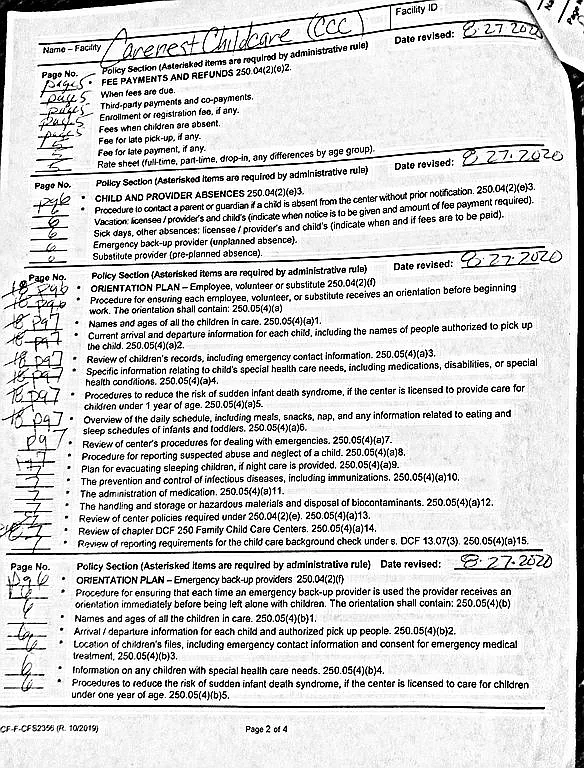 Facility ID
Name – Facility Carenest Childcare (CCC)
Date revised: 8.27.2020
Page No. Policy Section (Asterisked items are required by administrative rule)
pages • FEE PAYMENTS AND REFUNDS 250.04(2)(e)2.
pages When fees are due.
pages Third-party payments and co-payments.
pages Enrollment or registration fee, if any.
pages Fees when children are absent.
5 Fee for late pick-up, if any.
5 Fee for late payment, if any.
5 Rate sheet (full-time, part-time, drop-in, any differences by age group).
Page No. Policy Section (Asterisked items are required by administrative rule) Date revised: 8.27.2020
pg6 • CHILD AND PROVIDER ABSENCES 250.04(2)(e)3.
6 • Procedure to contact a parent or guardian if a child is absent from the center without prior notification. 250.04(2)(e)3.
6 Vacation: licensee / provider's and child's (indicate when notice is to be given and amount of fee payment required).
6 Sick days, other absences: licensee / provider's and child's (indicate when and if fees are to be paid).
6 Emergency back-up provider (unplanned absence).
6 Substitute provider (pre-planned absence).
Page No. Policy Section (Asterisked items are required by administrative rule) Date revised: 8.27.2020
pg6 • ORIENTATION PLAN – Employee, volunteer or substitute 250.04(2)(f)
pg6 • Procedure for ensuring each employee, volunteer, or substitute receives an orientation before beginning
work. The orientation shall contain: 250.05(4)(a)
pg7 • Names and ages of all the children in care. 250.05(4)(a)1.
pg7 • Current arrival and departure information for each child, including the names of people authorized to pick up
the child. 250.05(4)(a)2.
pg7 • Review of children's records, including emergency contact information. 250.05(4)(a)3.
pg7 • Specific information relating to child's special health care needs, including medications, disabilities, or special
health conditions. 250.05(4)(a)4.
pg7 • Procedures to reduce the risk of sudden infant death syndrome, if the center is licensed to provide care for
children under 1 year of age. 250.05(4)(a)5.
pg7 • Overview of the daily schedule, including meals, snacks, nap, and any information related to eating and
sleep schedules of infants and toddlers. 250.05(4)(a)6.
pg7 • Review of center's procedures for dealing with emergencies. 250.05(4)(a)7.
7 • Procedure for reporting suspected abuse and neglect of a child. 250.05(4)(a)8.
7 • Plan for evacuating sleeping children, if night care is provided. 250.05(4)(a)9.
7 • The prevention and control of infectious diseases, including immunizations. 250.05(4)(a)10.
7 • The administration of medication. 250.05(4)(a)11.
7 • The handling and storage or hazardous materials and disposal of biocontaminants. 250.05(4)(a)12.
7 • Review of center policies required under 250.04(2)(e). 250.05(4)(a)13.
7 • Review of chapter DCF 250 Family Child Care Centers. 250.05(4)(a)14.
7 • Review of reporting requirements for the child care background check under s. DCF 13.07(3). 250.05(4)(a)15.
Page No. Policy Section (Asterisked items are required by administrative rule) Date revised: 8.27.2020
pg6 • ORIENTATION PLAN – Emergency back-up providers 250.04(2)(f)
6 • Procedure for ensuring that each time an emergency back-up provider is used the provider receives an
orientation immediately before being left alone with children. The orientation shall contain: 250.05(4)(b)
6 • Names and ages of all the children in care. 250.05(4)(b)1.
6 • Arrival / departure information for each child and authorized pick up people. 250.05(4)(b)2.
6 • Location of children's files, including emergency contact information and consent for emergency medical
treatment, 250.05(4)(b)3.
6 • Information on any children with special health care needs. 250.05(4)(b)4.
6 • Procedures to reduce the risk of sudden infant death syndrome, if the center is licensed to care for children
under one year of age. 250.05(4)(b)5.
CF-F-CFS2356 (R. 10/2019) Page 2 of 4